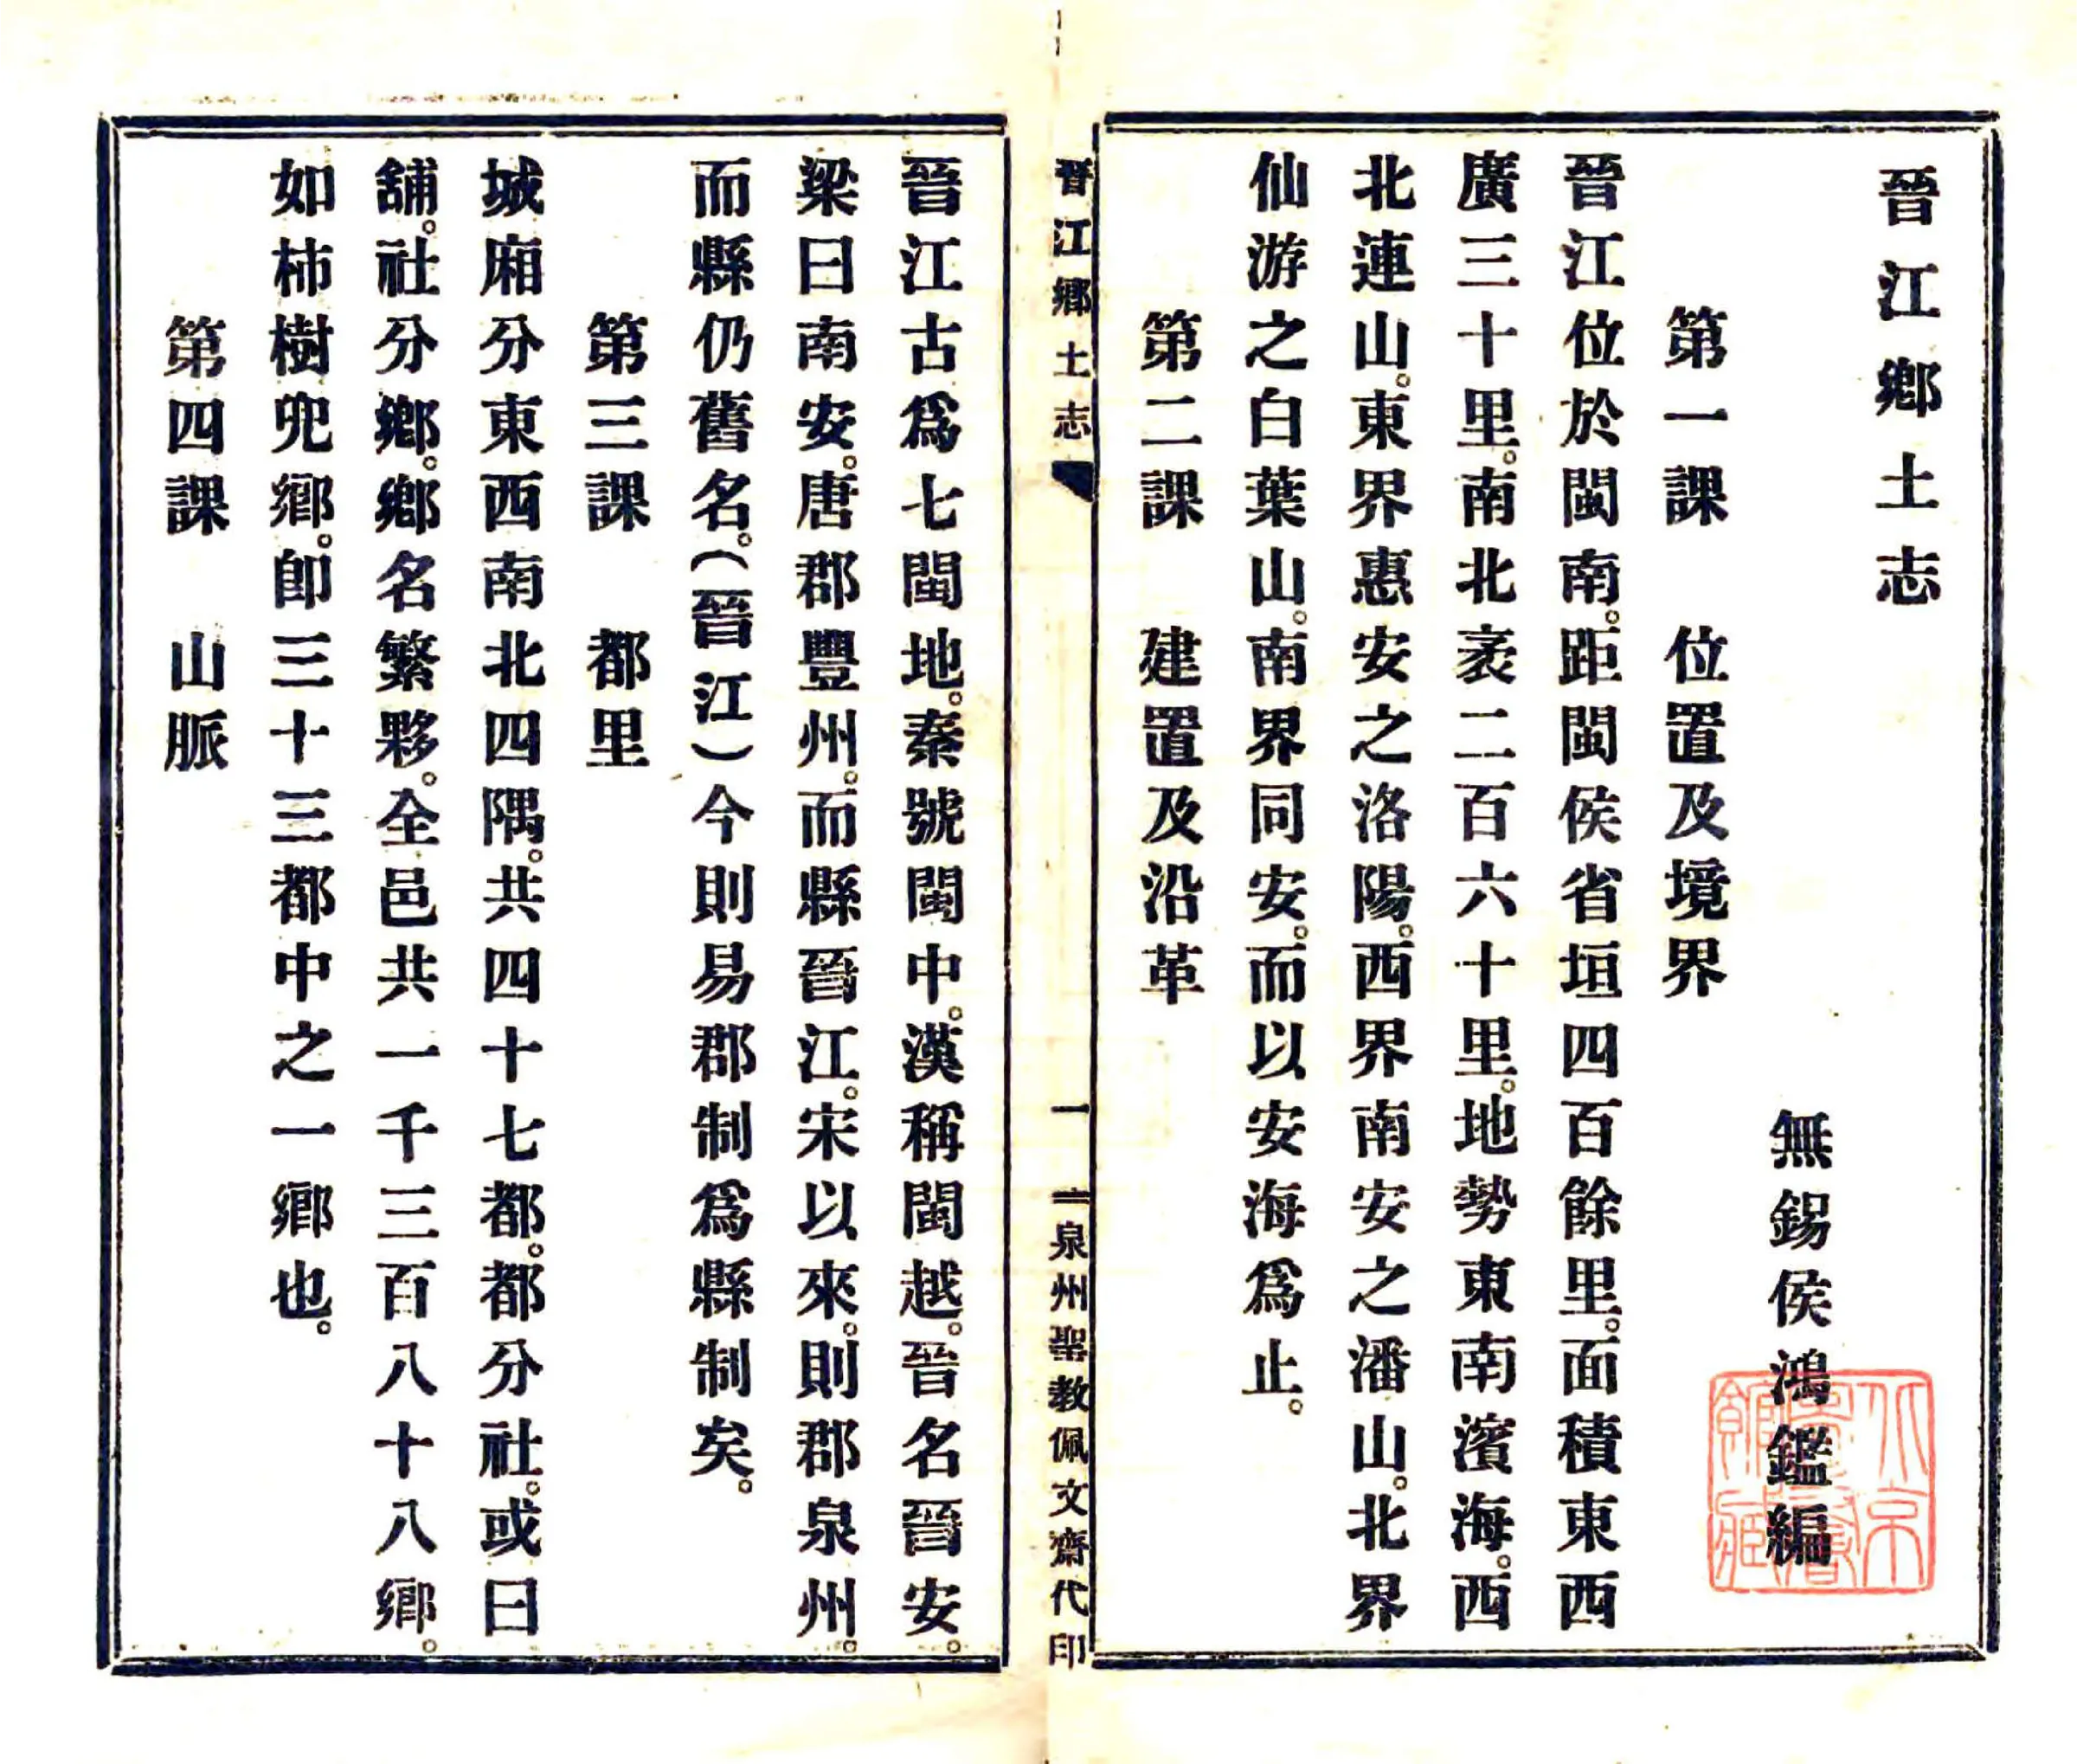 晉江鄉土志
無錫侯鴻鑑編
第一課　位置及境界
晉江位於閩南。距閩侯省垣四百餘里。面積東西
廣三十里。南北袤二百六十里。地勢東南濱海。西
北連山。東界惠安之洛陽。西界南安之潘山。北界
仙游之白葉山。南界同安。而以安海爲止。
第二課　建置及沿革
晉江鄉土志
一
泉州聖教佩文齋代印
晉江古爲七閩地。秦號閩中。漢稱閩越。晉名晉安。
梁曰南安。唐郡豐州。而縣晉江。宋以來。則郡泉州。
而縣仍舊名。（晉江）今則易郡制爲縣制矣。
第三課　都里
城廂分東西南北四隅。共四十七都。都分社。或曰
舖。社分鄉。鄉名繁夥。全邑共一千三百八十八鄉。
如柿樹兜鄉。卽三十三都中之一鄉也。
第四課　山脈
北京圖書館藏